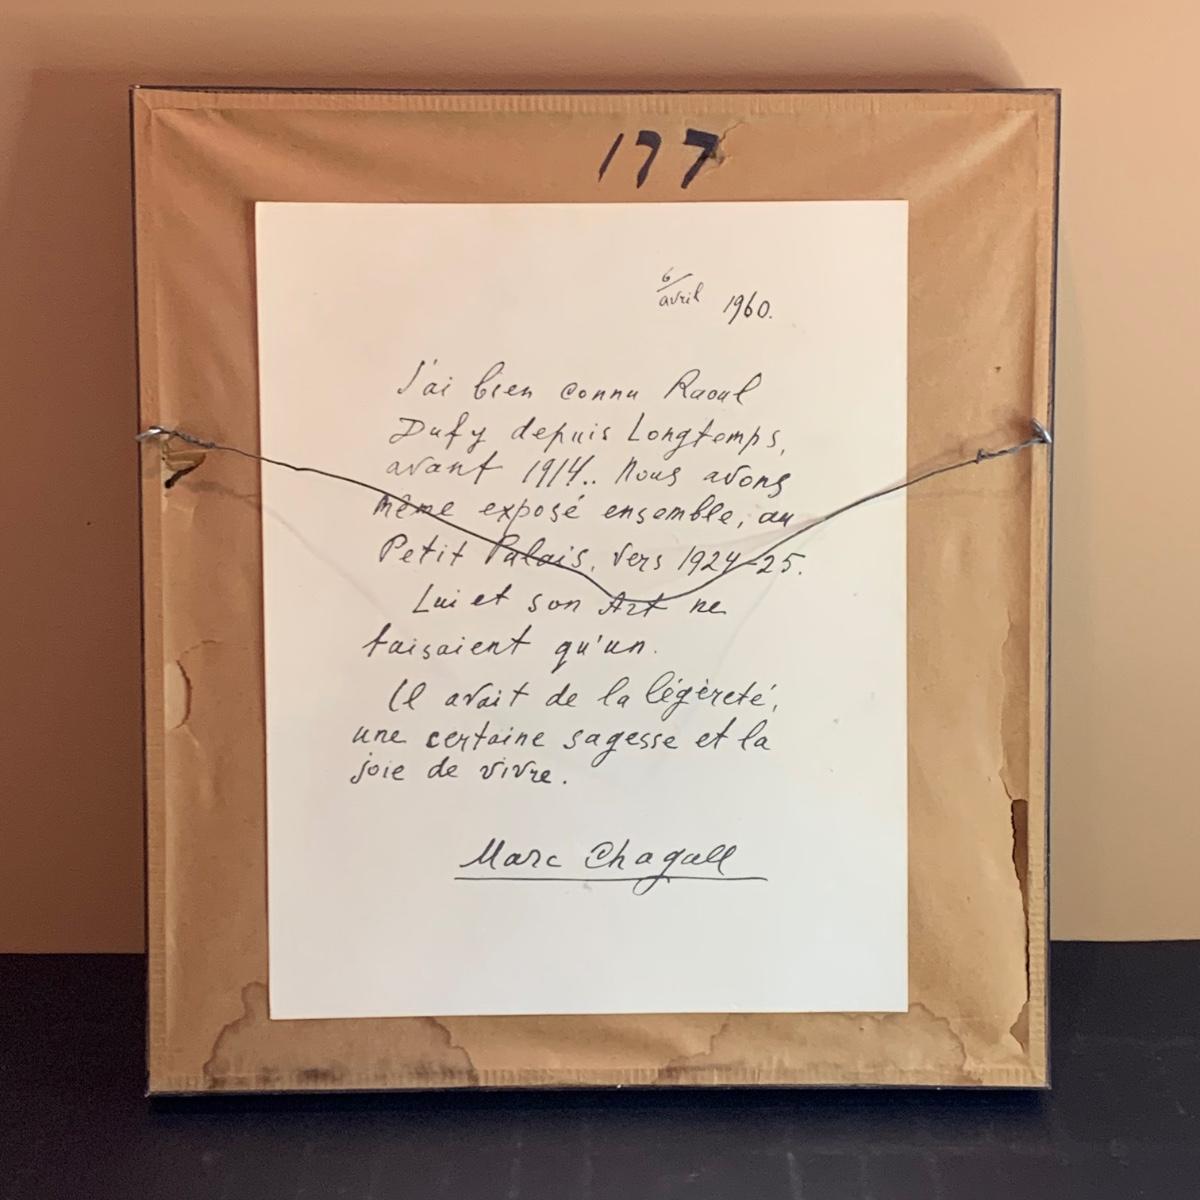 177
6/avril 1960.
J'ai bien connu Raoul
Dufy depuis Longtemps,
avant 1914.. Nous avons
même exposé ensemble, au
Petit Palais, vers 1924-25.
Lui et son Art ne
faisaient qu'un.
Il avait de la légèreté,
une certaine sagesse et la
joie de vivre.
Marc Chagall